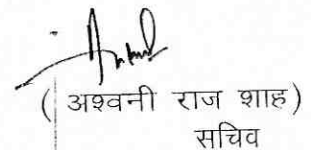 ( अश्वनी राज शाह)
सचिव